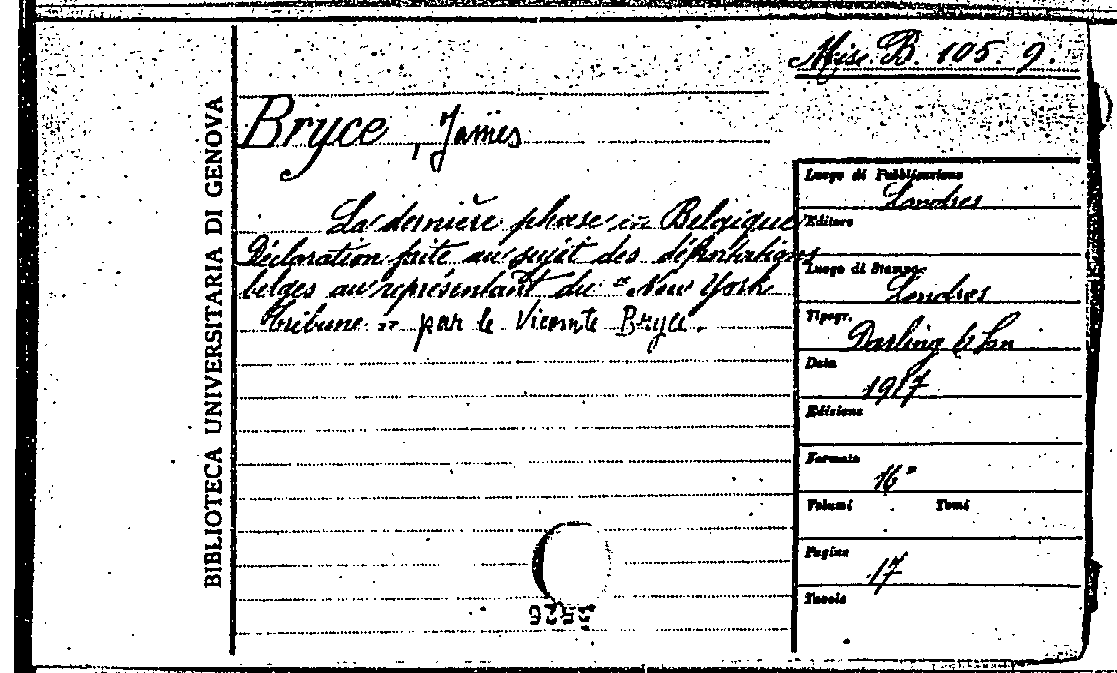 Misc. B. 105. 9.
BIBLIOTECA UNIVERSITARIA DI GENOVA
Bryce, James
La dernière phase en Belgique
Déclaration faite au sujet des déportations
belges au représentant du "New York
Tribune" par le Vicomte Bryce.
Luogo di Pubblicazione
Londres
Editore
Luogo di Stampa
Londres
Tipogr.
Darling & Son
Data
1917
Edizione
Formato
16°
Volumi Tomi
Pagine
17
Tavole